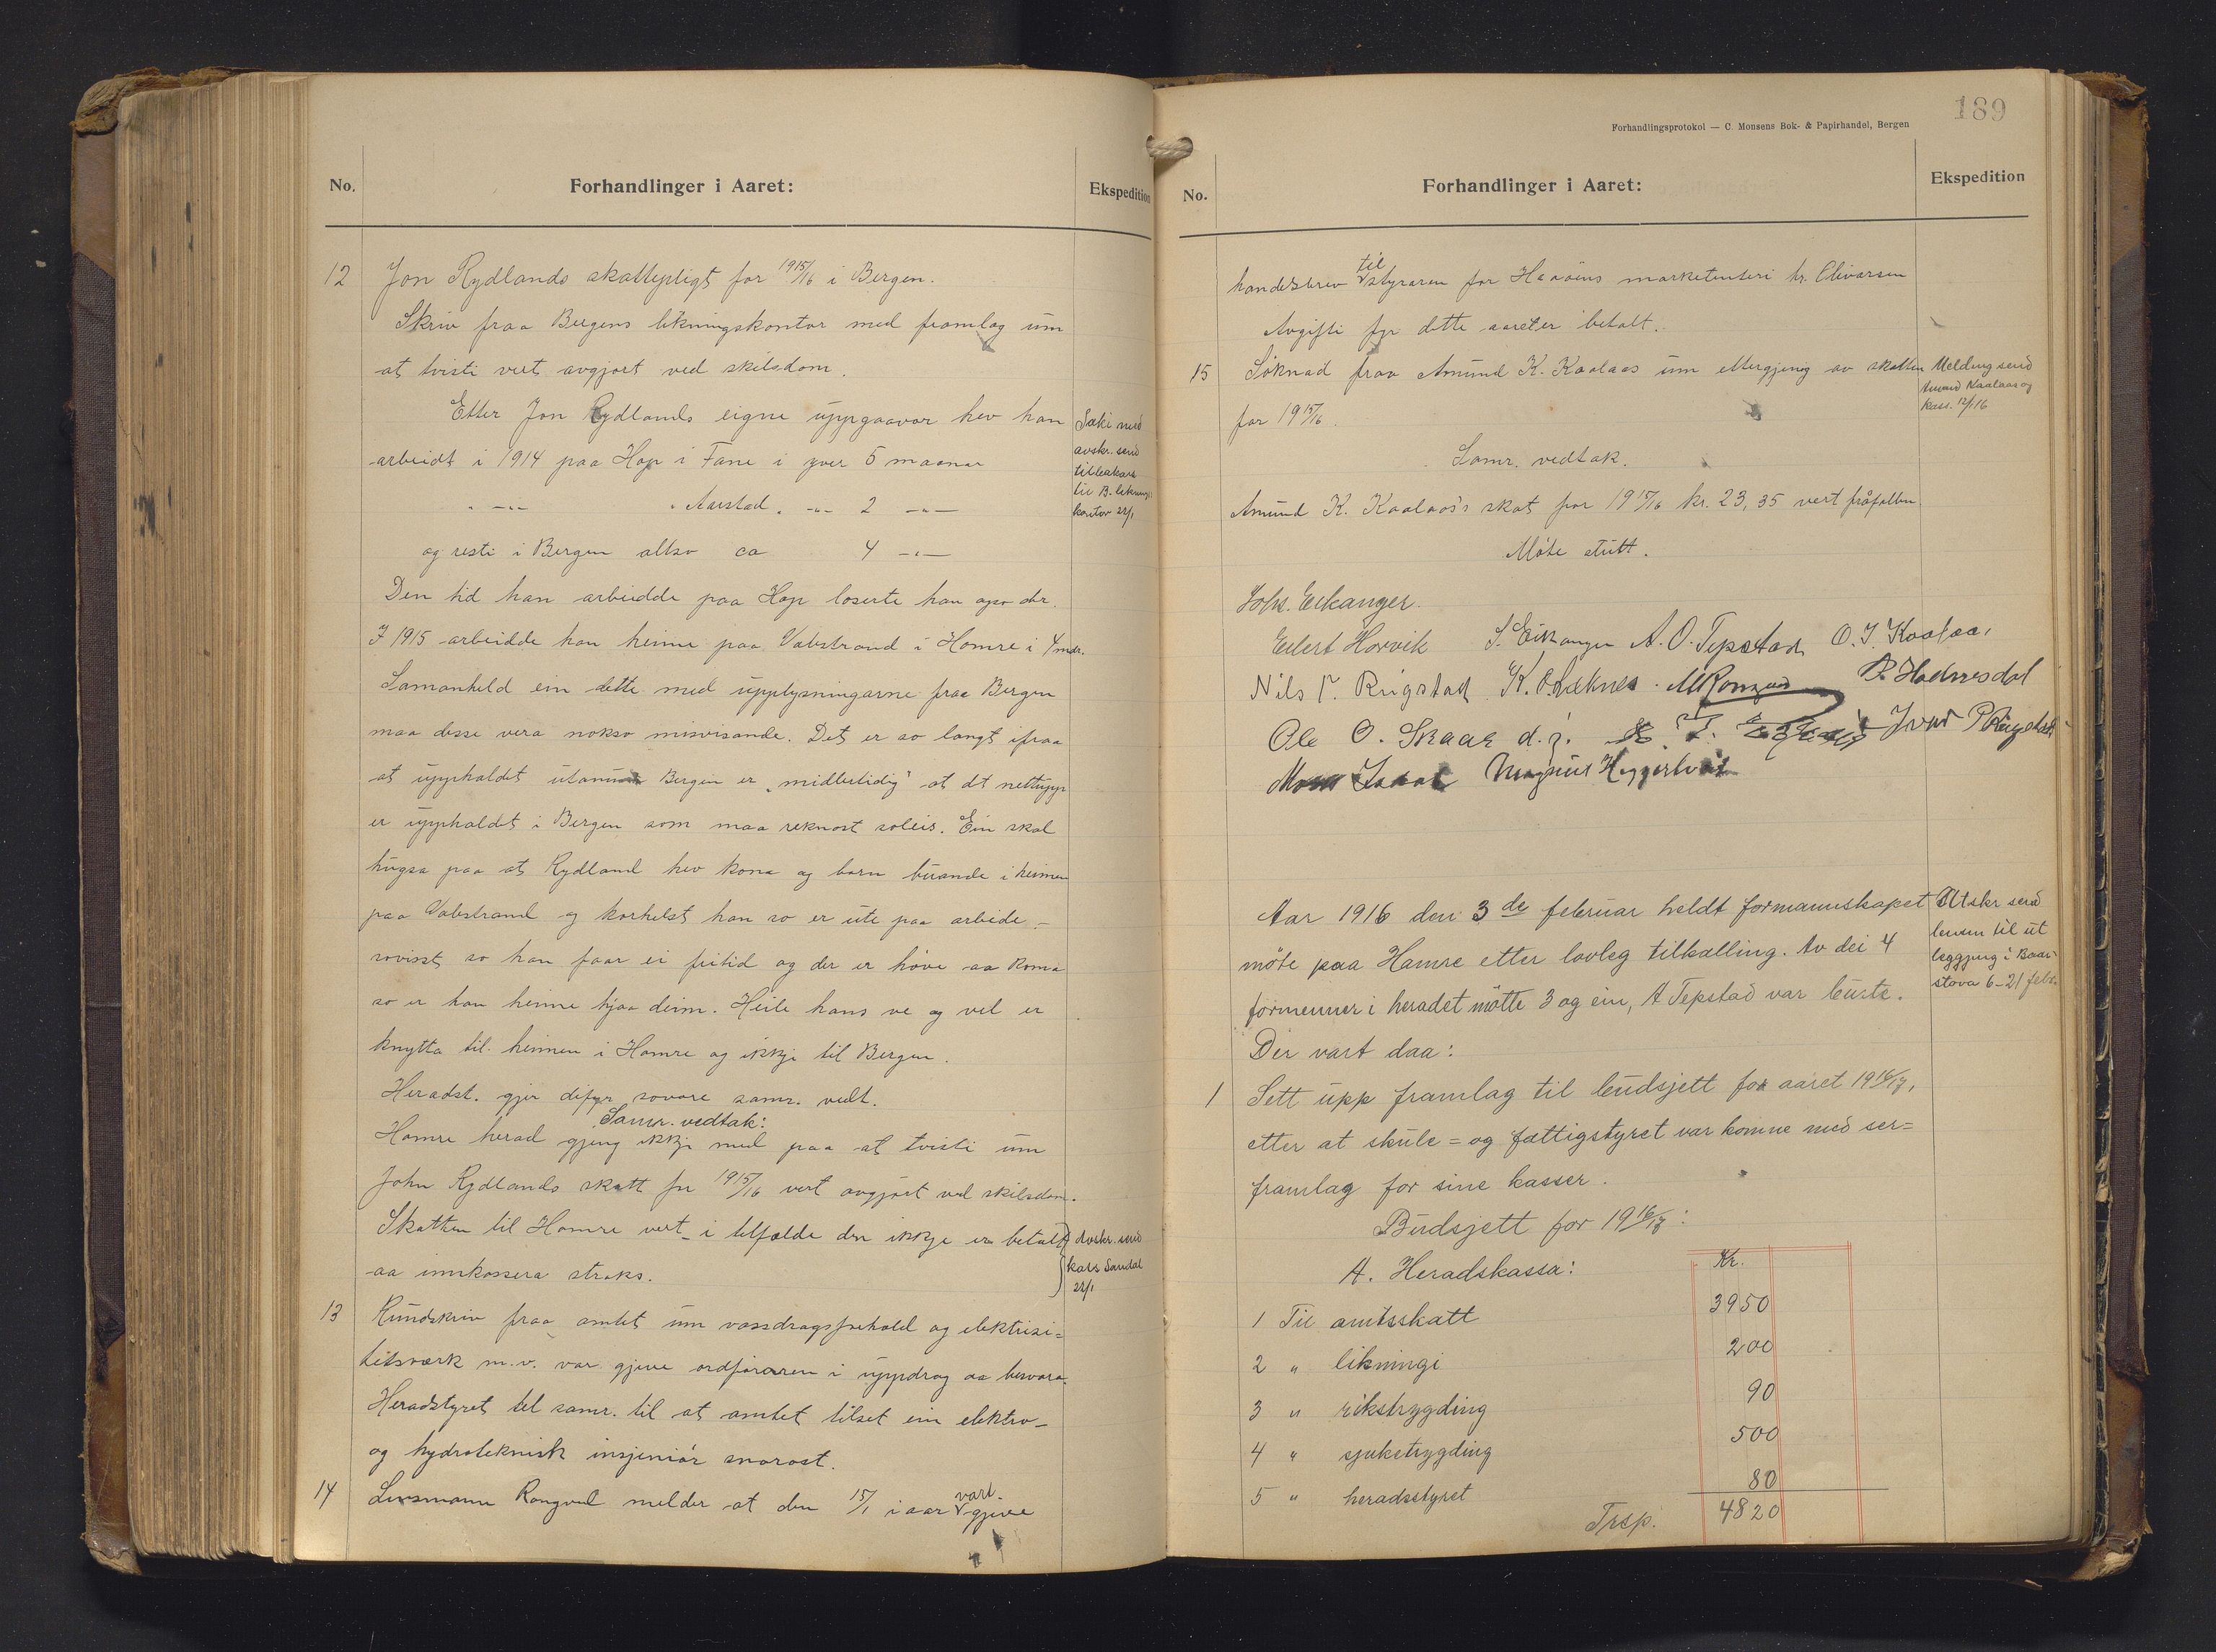 No.
Forhandlinger i Aaret:
Ekspedition
12 Jon Rydlands skattepligt for 1915/16 i Bergen.
Skriv fraa Bergens likningskontor med framlag um
at tvisti vert avgjort ved skilsdom.
Etter Jon Rydlands eigne uppgaavor hev han
arbeidt i 1914 paa Hop i Fane i yver 5 maanar
" -"- " Aarstad " -"- 2 -"-
og resti i Bergen altso ca 4 -"-
Den tid han arbeidde paa Hop loserte han ogso der.
I 1915 arbeidde han heime paa Vabstrand i Hamre i 4 mdr.
Samanheld ein dette med upplysningarne fraa Bergen
maa desse vera nokso misvisande. Det er so langt ifraa
at uppholdet utanum Bergen er "midlertidig" at dt nettupp
er uppholdet i Bergen som maa reknast soleis. Ein skal
hugsa paa at Rydland hev kona og born buande i heimen
paa Vabstrand og korhelst han so er ute paa arbeide -
sovisst so han faar ei fritid og der er høve aa koma
so er han heime hjaa deim. Heile hans ve og vel er
knytta til heimen i Hamre og ikkje til Bergen.
Heradst. gjer difyr sovore samr. vedt.
Samr. vedtak:
Hamre herad gjeng ikkje med paa at tvisti um
John Rydlands skatt for 1915/16 vert avgjort ved skilsdom.
Skatten til Hamre vert - i tilfælde den ikkje er betalt
aa innkassera straks.
13 Rundskriv fraa amtet um vassdragsforhold og elektrisi=
tetsværk m.v. var gjeve ordføraren i uppdrag aa besvara.
Heradstyret tel samr. til at amtet tilset ein elektro-
og hydroteknisk insjeniør snarast.
14 Lensmann Rongved melder at den 15/1 i aar vart gjeve
Saki med
avskr. send
tilbakars
til B. liknings
kontor 22/1
Avskr. send
kass Sandal
22/1
189
Forhandlingsprotokol — C. Monsens Bok- & Papirhandel, Bergen
No.
Forhandlinger i Aaret:
Ekspedition
handelsbrev til styraren for Haaøens marketenteri hr. Olivarsen
Avgifti fyr dette aaret er betalt.
15 Søknad fraa Amund K. Kaalaas um ettergjeving av skatten
for 1915/16.
Samr. vedtak.
Amund K. Kaalaas's skat for 1915/16 kr. 23,35 vert fråfallen.
Møte slutt.
Melding send
Amund Kaalaas og
kass. 12/1 16
Johs. Eikanger.
Eilert Horvik S. Eikanger A. O. Tepstad O. J. Kaalaas
Nils P. Rigstad K. O. Læknes M Rongved P. Hodnesdal
Ole O. Skaar d.y. Ivar P Rigstad
Mons Magnus Heggertveit
Aar 1916 den 3de februar heldt formannskapet
møte paa Hamre etter lovleg tilkalling. Av dei 4
formenner i heradet møtte 3 og ein, A Tepstad var burte.
Der vart daa:
1 Sett upp framlag til budsjett for aaret 1916/17,
etter at skule= og fattigstyret var komne med ser=
framlag for sine kasser.
Utskr send
lensm til ut
leggjing i Baar-
stova 6-21 febr.
Budsjett for 1916/17:
A. Heradskassa: Kr.
1 Til amtsskatt 3950
2 " likningi 200
3 " rikstrygding 90
4 " sjuketrygding 500
5 " heradsstyret 80
Trsp. 4820